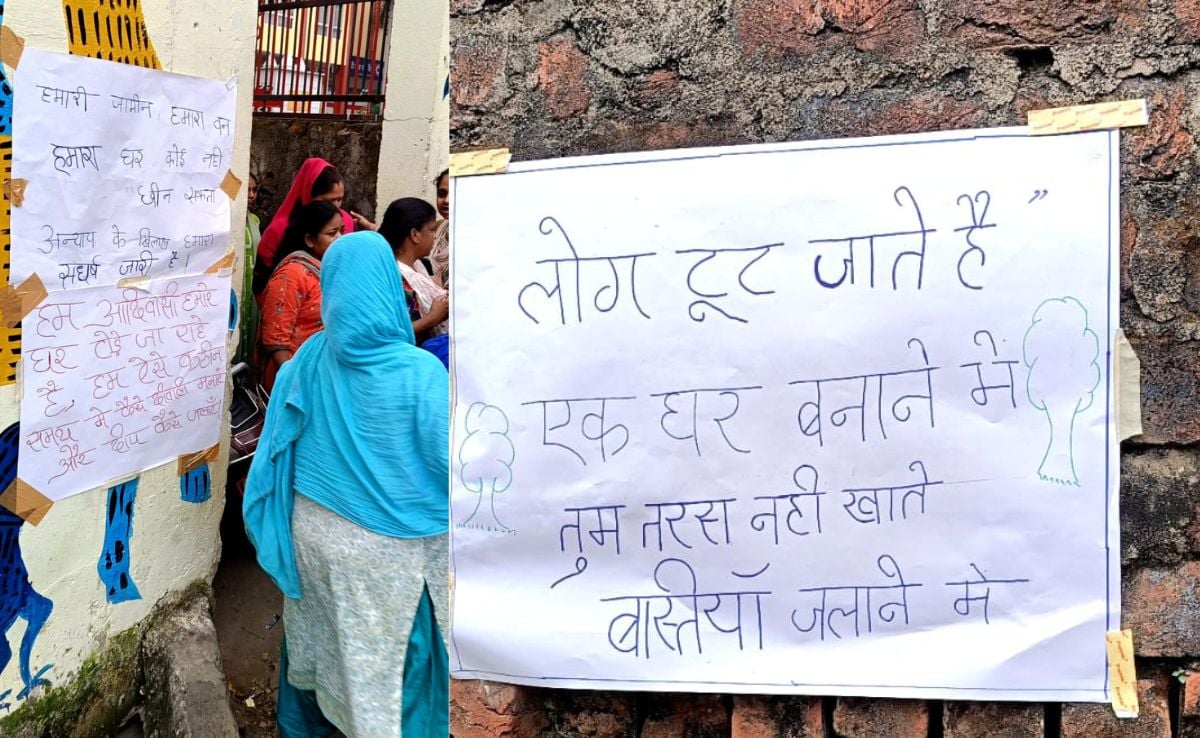 हमारी जामीन, हमारा वन
हमारा घर कोई नही
"छीन सकता
अन्याय के खिलाफ हमारा
संघर्ष जारी है।
हम आदिवासी हमारे
घर तोड़े जा राहे
है,, हम ऐसे कठीन
समय मे कैसे दीवाली मनाएँ
और दीप कैसे जलाएँ।
लोग टूट जाते है"
एक घर बनाने में
तुम तरस नही खाते
बास्तियाँ जलाने मे